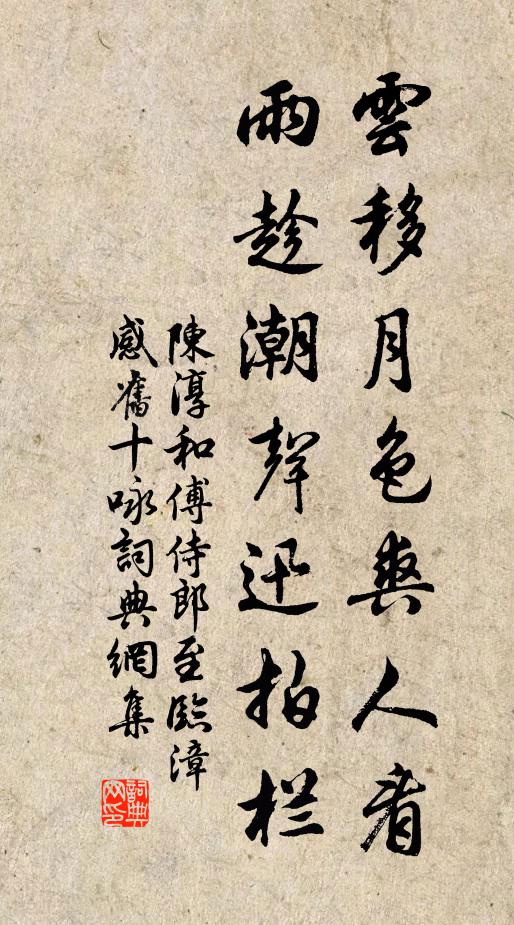 雲移月色爽人看
雨趁潮聲迅拍栏
陳淳和傅侍郎至臨漳
感舊十咏詞典網集
詞典
网印